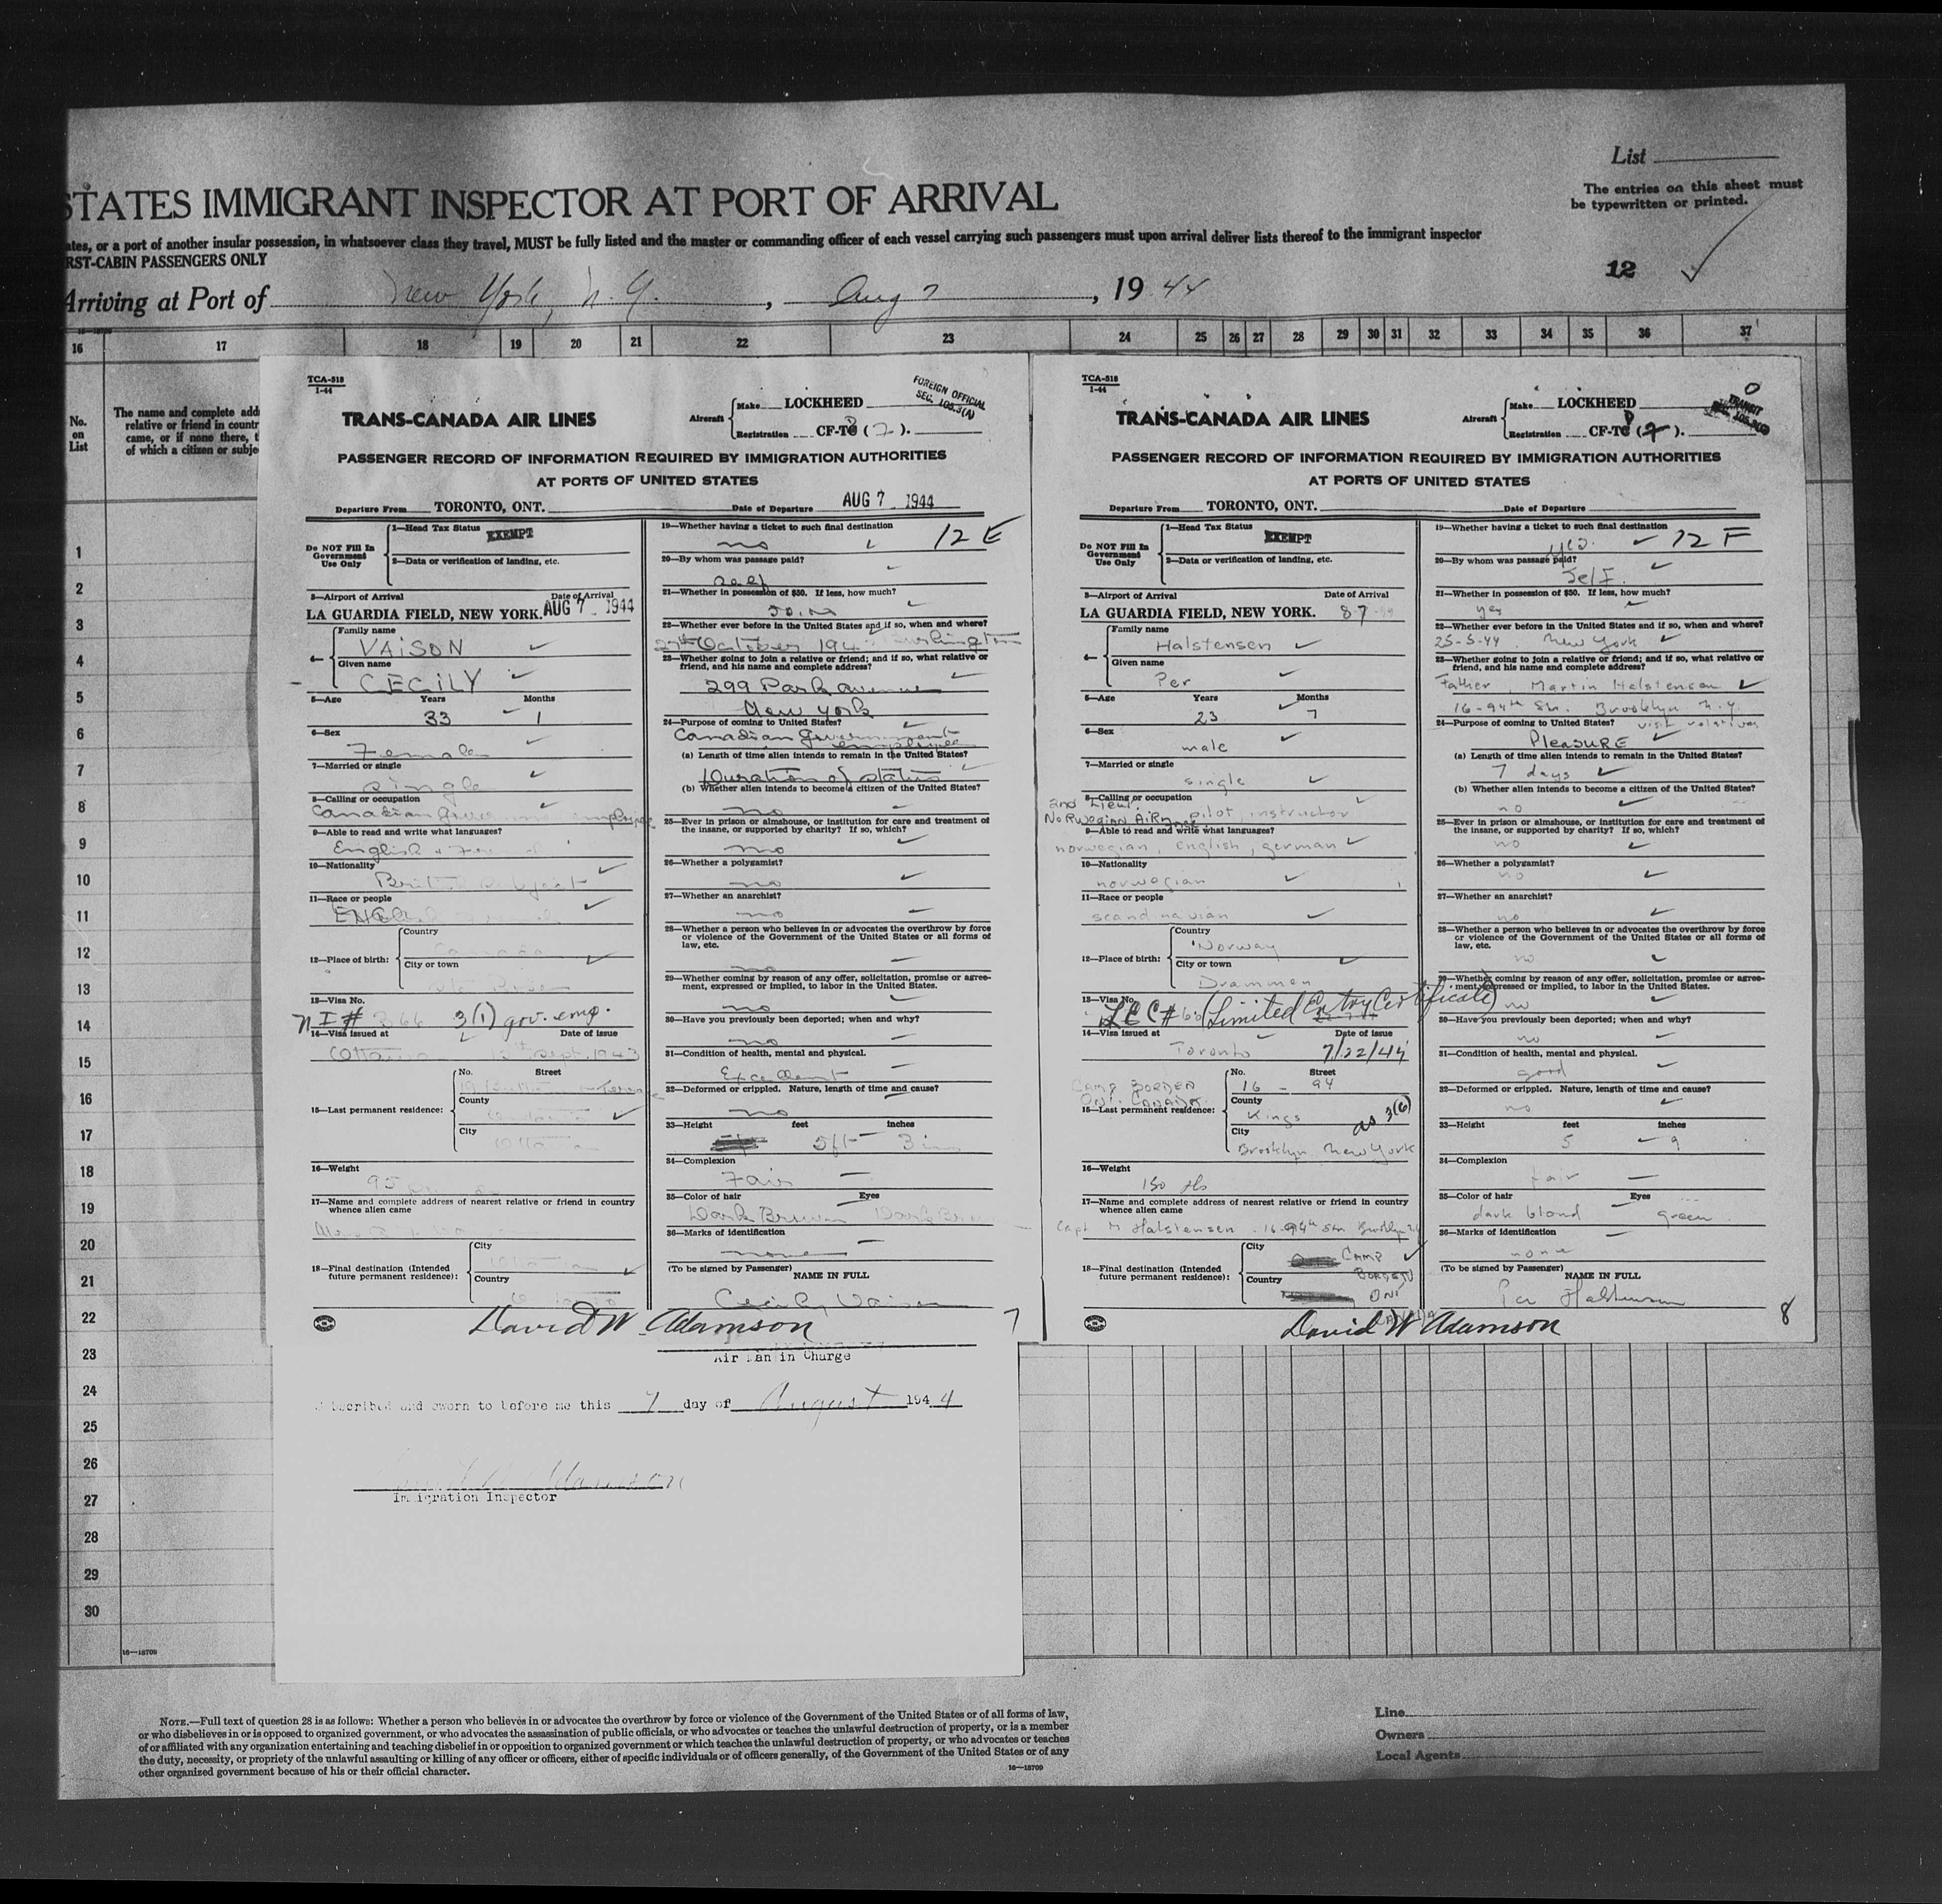 List
The entries on this sheet must
be typewritten or printed.
STATES IMMIGRANT INSPECTOR AT PORT OF ARRIVAL
ates, or a port of another insular possession, in whatsoever class they travel, MUST be fully listed and the master or commanding officer of each vessel carrying such passengers must upon arrival deliver lists thereof to the immigrant inspector
RST-CABIN PASSENGERS ONLY
12
Arriving at Port of New York, N.Y., Aug 7, 1944
16 17 18 19 20 21 22 23 24 25 26 27 28 29 30 31 32 33 34 35 36 37
No.
on
List
The name and complete add
relative or friend in countr
came, or if none there, t
of which a citizen or subje
1
2
3
4
5
6
7
8
9
10
11
12
13
14
15
16
17
18
19
20
21
22
23
24
25
26
27
28
29
30
16—18709
TCA-518
1-44
TRANS-CANADA AIR LINES
Aircraft
Make LOCKHEED
Registration CF-TC (7).
FOREIGN OFFICIAL
SEC. 105.3(A)
PASSENGER RECORD OF INFORMATION REQUIRED BY IMMIGRATION AUTHORITIES
AT PORTS OF UNITED STATES
Departure From TORONTO, ONT. Date of Departure AUG 7 1944
Do NOT Fill In
Government
Use Only
1—Head Tax Status EXEMPT
2—Data or verification of landing, etc.
3—Airport of Arrival Date of Arrival
LA GUARDIA FIELD, NEW YORK. AUG 7 1944
4—
Family name
VAISON
Given name
CECILY
5—Age Years Months
33 1
6—Sex
Female
7—Married or single
single
8—Calling or occupation
Canadian Government employee
9—Able to read and write what languages?
English
10—Nationality
British subject
11—Race or people
12—Place of birth:
Country
Canada
City or town
13—Visa No.
NI# 3(1) gov. emp.
14—Visa issued at Date of issue
Ottawa Sept. 1943
15—Last permanent residence:
No. Street
County
City
Ottawa
16—Weight
95
17—Name and complete address of nearest relative or friend in country
whence alien came
18—Final destination (Intended
future permanent residence):
City
Country
19—Whether having a ticket to such final destination
no 12 E
20—By whom was passage paid?
self
21—Whether in possession of $50. If less, how much?
22—Whether ever before in the United States and if so, when and where?
October Washington
23—Whether going to join a relative or friend; and if so, what relative or
friend, and his name and complete address?
299 Park avenue
New York
24—Purpose of coming to United States?
Canadian Government
employee
(a) Length of time alien intends to remain in the United States?
Duration of status
(b) Whether alien intends to become a citizen of the United States?
no
25—Ever in prison or almshouse, or institution for care and treatment of
the insane, or supported by charity? If so, which?
no
26—Whether a polygamist?
no
27—Whether an anarchist?
no
28—Whether a person who believes in or advocates the overthrow by force
or violence of the Government of the United States or all forms of
law, etc.
no
29—Whether coming by reason of any offer, solicitation, promise or agree-
ment, expressed or implied, to labor in the United States.
no
30—Have you previously been deported; when and why?
no
31—Condition of health, mental and physical.
Excellent
32—Deformed or crippled. Nature, length of time and cause?
no
33—Height feet inches
5ft 3in
34—Complexion
Fair
35—Color of hair Eyes
Dark Brown Dark Brown
36—Marks of identification
none
(To be signed by Passenger)
NAME IN FULL
Cecily Vaison
David W Adamson 7
Air Man in Charge
Subscribed and sworn to before me this 7 day of August 1944
Immigration Inspector
TCA-518
1-44
TRANS-CANADA AIR LINES
Aircraft
Make LOCKHEED
Registration CF-TC (7).
TRANSIT
PASSENGER RECORD OF INFORMATION REQUIRED BY IMMIGRATION AUTHORITIES
AT PORTS OF UNITED STATES
Departure From TORONTO, ONT. Date of Departure
Do NOT Fill In
Government
Use Only
1—Head Tax Status EXEMPT
2—Data or verification of landing, etc.
3—Airport of Arrival Date of Arrival
LA GUARDIA FIELD, NEW YORK. 8-7
4—
Family name
Halstensen
Given name
Per
5—Age Years Months
23 7
6—Sex
male
7—Married or single
single
8—Calling or occupation
2nd Lieut.
Norwegian Airforce pilot, instructor
9—Able to read and write what languages?
norwegian, english, german
10—Nationality
norwegian
11—Race or people
scandinavian
12—Place of birth:
Country
Norway
City or town
Drammen
13—Visa No.
LEC# (Limited Entry Certificate)
14—Visa issued at Date of issue
Toronto 7/22/44
CAMP BORDEN
ONT. CANADA
15—Last permanent residence:
No. Street
16 - 94
County
Kings
as 3(6)
City
Brooklyn, New York
16—Weight
150 lbs
17—Name and complete address of nearest relative or friend in country
whence alien came
Capt M Halstensen 16-94th Str. Brooklyn
18—Final destination (Intended
future permanent residence):
City
CAMP
BORDEN
Country
ONT
19—Whether having a ticket to such final destination
yes. 12 F
20—By whom was passage paid?
self.
21—Whether in possession of $50. If less, how much?
yes
22—Whether ever before in the United States and if so, when and where?
25-5-44 New York
23—Whether going to join a relative or friend; and if so, what relative or
friend, and his name and complete address?
Father, Martin Halstensen
16-94th Str. Brooklyn N.Y.
24—Purpose of coming to United States? visit relatives
PLEASURE
(a) Length of time alien intends to remain in the United States?
7 days
(b) Whether alien intends to become a citizen of the United States?
no
25—Ever in prison or almshouse, or institution for care and treatment of
the insane, or supported by charity? If so, which?
no
26—Whether a polygamist?
no
27—Whether an anarchist?
no
28—Whether a person who believes in or advocates the overthrow by force
or violence of the Government of the United States or all forms of
law, etc.
no
29—Whether coming by reason of any offer, solicitation, promise or agree-
ment, expressed or implied, to labor in the United States.
no
30—Have you previously been deported; when and why?
no
31—Condition of health, mental and physical.
good
32—Deformed or crippled. Nature, length of time and cause?
no
33—Height feet inches
5 9
34—Complexion
fair
35—Color of hair Eyes
dark blond green
36—Marks of identification
none
(To be signed by Passenger)
NAME IN FULL
Per Halstensen
David W Adamson 8
NOTE.—Full text of question 28 is as follows: Whether a person who believes in or advocates the overthrow by force or violence of the Government of the United States or of all forms of law,
or who disbelieves in or is opposed to organized government, or who advocates the assassination of public officials, or who advocates or teaches the unlawful destruction of property, or is a member
of or affiliated with any organization entertaining and teaching disbelief in or opposition to organized government or which teaches the unlawful destruction of property, or who advocates or teaches
the duty, necessity, or propriety of the unlawful assaulting or killing of any officer or officers, either of specific individuals or of officers generally, of the Government of the United States or of any
other organized government because of his or their official character.
16—18709
Line
Owners
Local Agents